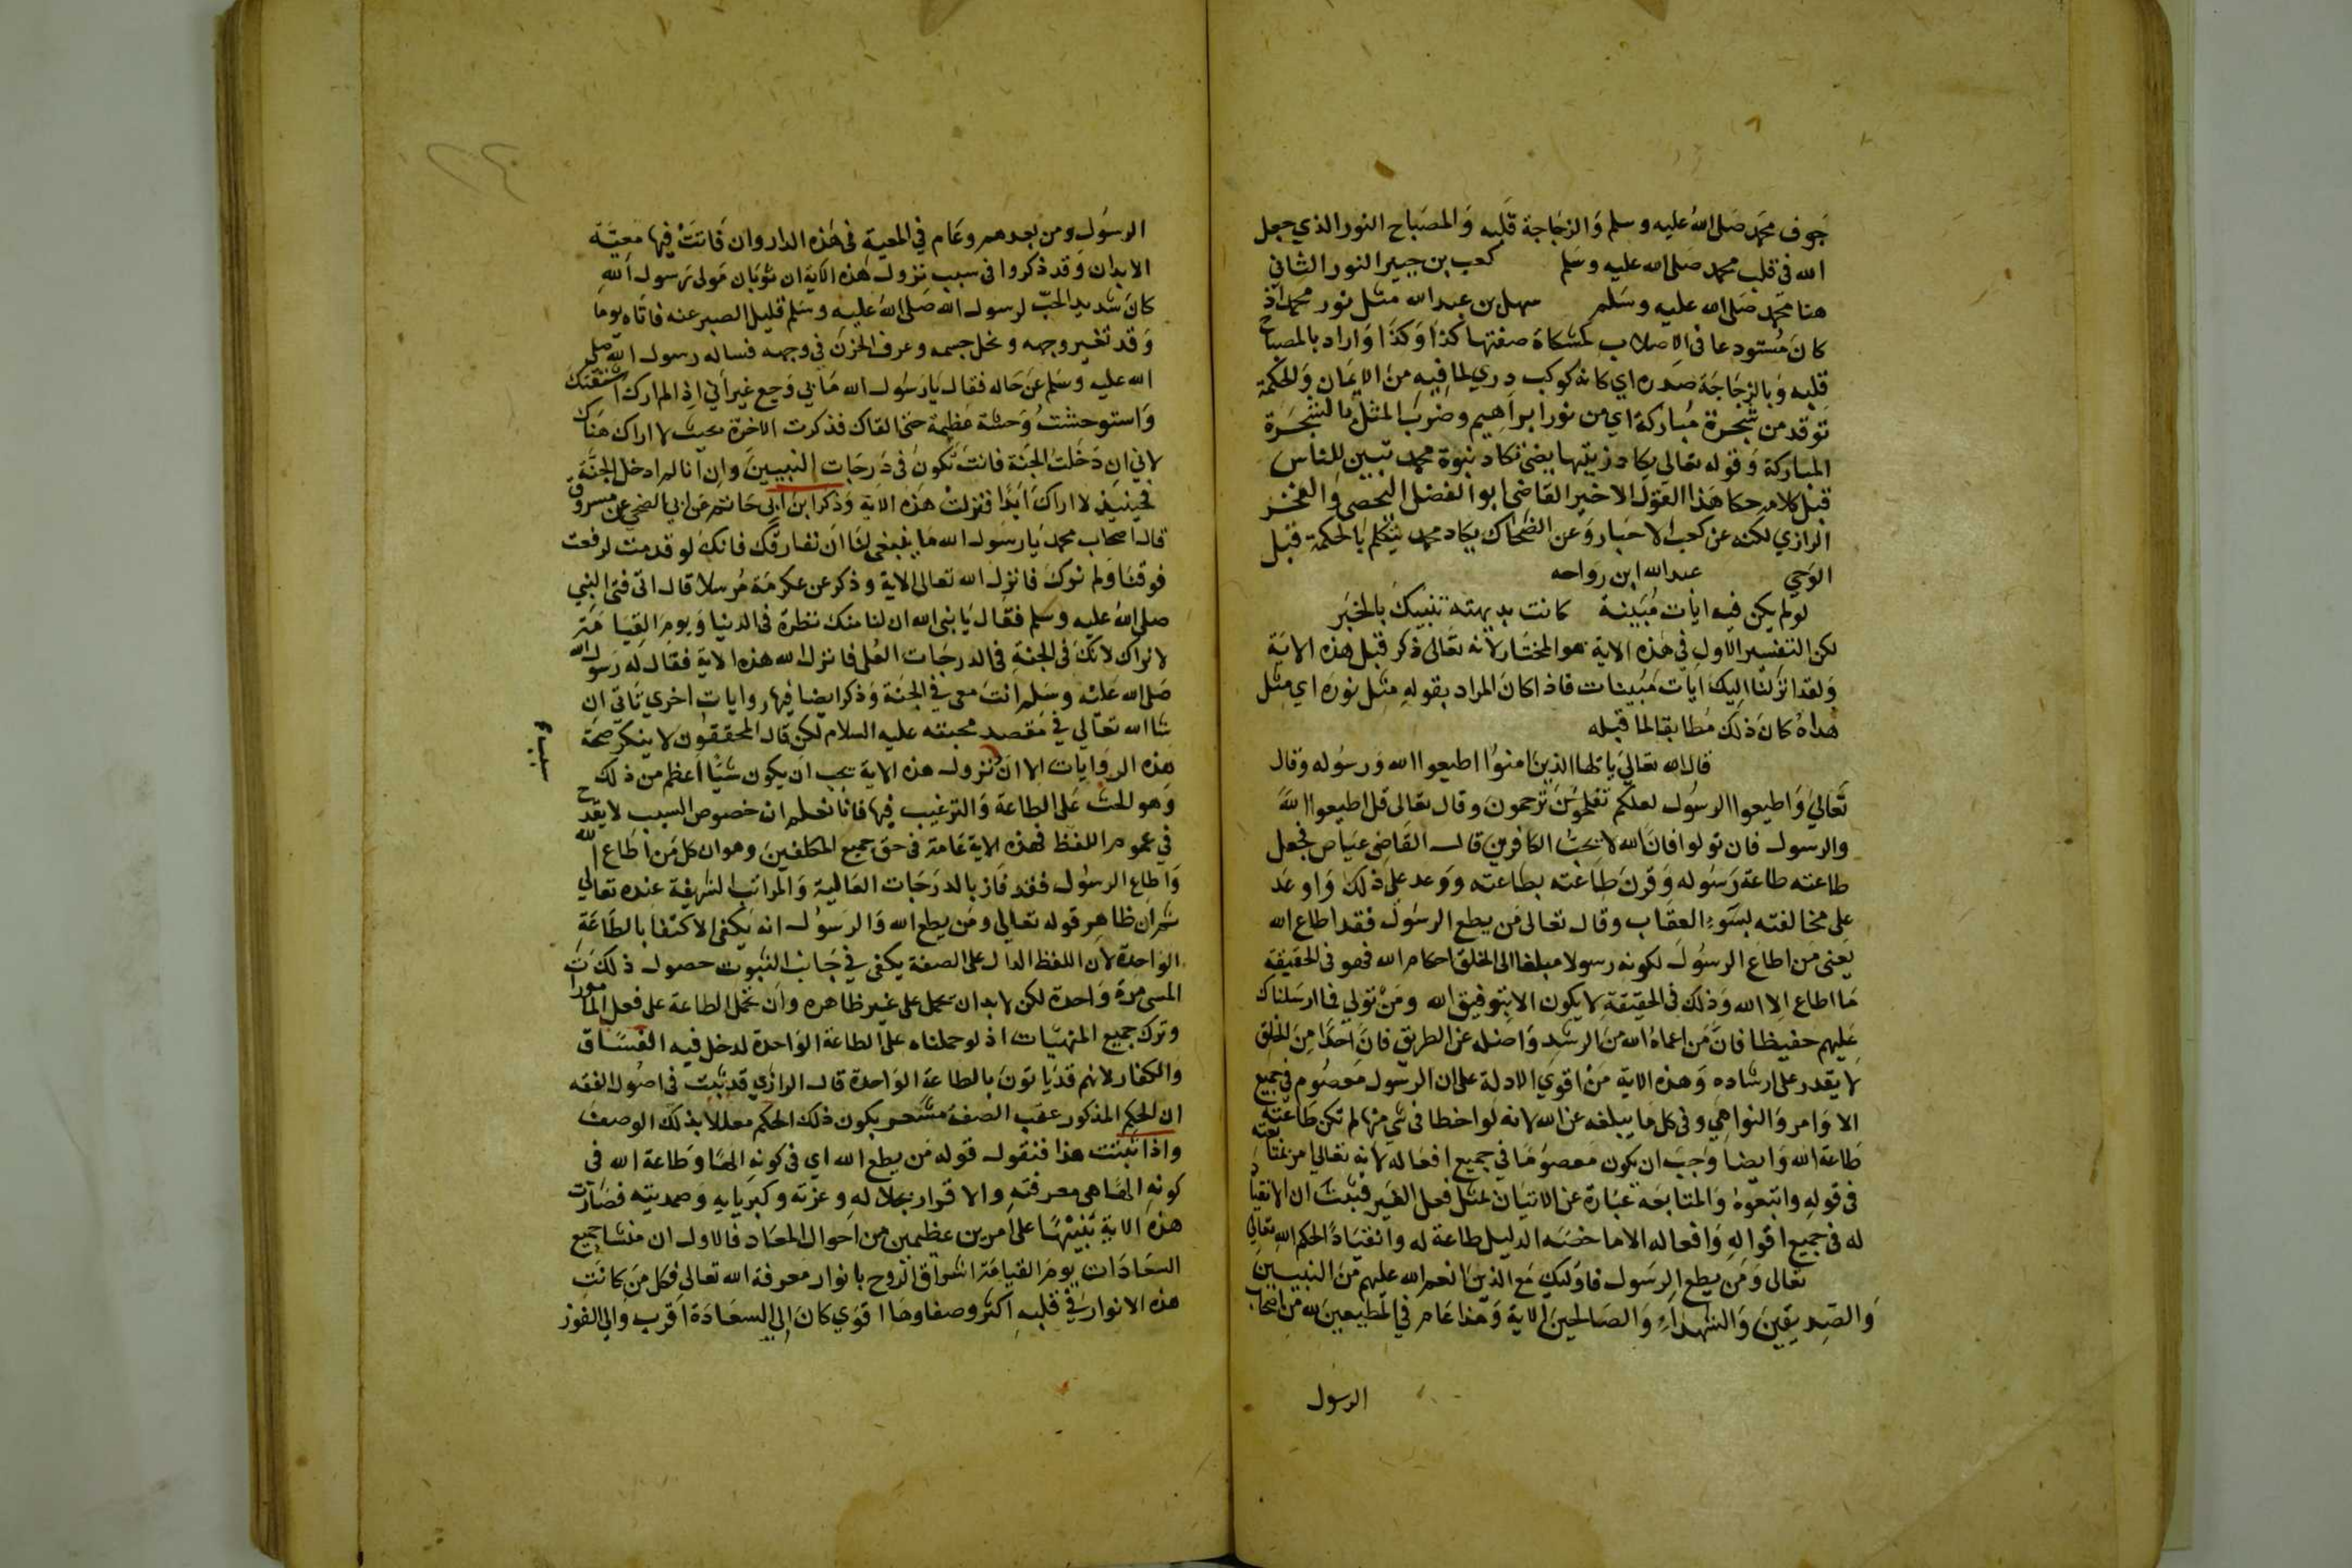 جوف محمد صلى الله عليه وسلم والزجاجة قلبه والمصباح النور الذي جعل
الله فى قلب محمد صلى الله عليه وسلم كعب بن جبير النور الثانى
هنا محمد صلى الله عليه وسلم سهل بن عبد الله مثل نور محمد اذ
كان مستودعا فى الاصلاب كمشكاة صفتها كذا وكذا واراد بالمصباح
قلبه وبالزجاجة صدره اي كانه كوكب دري لما فيه من الايمان والحكمة
توقد من شجرة مباركة اي من نور ابراهيم وضرب المثل بالشجرة
المباركة وقوله تعالى يكاد زيتها يضئ تكاد نبوة محمد تبين للناس
قبل كلامه حكا هذا القول الاخير القاضى ابو الفضل اليحصبى والفخر
الرازي لكنه عن كعب الاحبار وعن الضحاك يكاد محمد يتكلم بالحكمة قبل
الوحي عبد الله ابن رواحه
لو لم يكن فيه ايات مبينة كانت بديهته تنبيك بالخبر
لكن التفسير الاول في هذه الاية هو المختار لانه تعالى ذكر قبل هذه الاية
ولقد انزلنا اليك ايات مبينات فاذا كان المراد بقوله مثل نوره اي مثل
هداه كان ذلك مطابقا لما قبله
قال الله تعالى يا ايها الذين امنوا اطيعوا الله ورسوله وقال
تعالى واطيعوا الرسول لعلكم ترحمون وقال تعالى قل اطيعوا الله
والرسول فان تولوا فان الله لا يحب الكافرين قال القاضى عياض فجعل
طاعته طاعة رسوله وقرن طاعته بطاعته ووعد على ذلك واوعد
على مخالفته بسوء العقاب وقال تعالى من يطع الرسول فقد اطاع الله
يعنى من اطاع الرسول لكونه رسولا مبلغا الى الخلق احكام الله فهو فى الحقيقة
ما اطاع الا الله وذلك فى الحقيقة لا يكون الا بتوفيق الله ومن تولي فما ارسلناك
عليهم حفيظا فان من اعماه الله من الرشد واضله عن الطريق فان احدا من الخلق
لا يقدر على ارشاده وهذه الاية من اقوي الادلة على ان الرسول معصوم في جميع
الاوامر والنواهي وفى كل ما يبلغه عن الله لانه لو اخطا فى شي منها لم تكن طاعته
طاعة الله وايضا وجب ان يكون معصوما في جميع افعاله لانه تعالى امر بمتابعته
فى قوله واتبعوه والمتابعة عبارة عن الاتيان بمثل فعل الغير فثبت ان الانقياد
له فى جميع اقواله وافعاله الا ما خصه الدليل طاعة له وانقيادا لحكم الله تعالى
تعالى ومن يطع الرسول فاوليك مع الذين انعم الله عليهم من النبيين
والصديقين والشهداء والصالحين الاية وهذا عام في المطيعين لله من اصحاب
الرسول
الرسول ومن بعدهم وعام في المعية فى هذه الدار وان فاتت فيها معية
الابدان وقد ذكروا فى سبب نزول هذه الاية ان ثوبان مولى رسول الله
كان شديد الحب لرسول الله صلى الله عليه وسلم قليل الصبر عنه فاتاه يوما
وقد تغير وجهه ونحل جسمه وعرف الحزن في وجهه فساله رسول الله صلى
الله عليه وسلم عن حاله فقال يا رسول الله ما بي وجع غير اني اذا لم ارك اشتقتك
واستوحشت وحشة عظيمة حتى القاك فذكرت الاخرة بحيث لا اراك هناك
لاني ان دخلت الجنة فانت تكون فى درجات النبيين وان انا لم ادخل الجنة
فحينيذ لا اراك ابدا فنزلت هذه الاية وذكر ابن ابى حاتم عن ابى الضحى عن مسروق
قال اصحاب محمد يا رسول الله ما ينبغى لنا ان نفارقك فانك لو قدمت لرفعت
فوقنا ولم نرك فانزل الله تعالى الاية وذكر عن عكرمة مرسلا قال اتى فتى النبي
صلى الله عليه وسلم فقال يا نبى الله ان لنا منك نظرة فى الدنيا ويوم القيامة
لا نراك لانك فى الجنة فى الدرجات العلى فانزل الله هذه الاية فقال له رسول الله
صلى الله عليه وسلم انت معى في الجنة وذكر ايضا فيها روايات اخري تاتى ان
شا الله تعالى في مقصد محبته عليه السلام لكن قال المحققون لا ينكر صحة
هذه الروايات الا ان نزول هذه الاية يجب ان يكون شيا اعظم من ذلك
وهو الحث على الطاعة والترغيب فيها فانا نعلم ان خصوص السبب لا يقدح
في عموم اللفظ فهذه الاية عامة فى حق جميع المكلفين وهو ان كل من اطاع الله
واطاع الرسول فقد فاز بالدرجات العالية والمراتب الشريفة عنده تعالى
ثم ان ظاهر قوله تعالى ومن يطع الله والرسول انه يكفى الاكتفا بالطاعة
الواحدة لان اللفظ الدال على الصفة يكفى في جانب الثبوت حصول ذلك
المسمى مرة واحدة لكن لابد ان يحمل على غير ظاهره وان تحمل الطاعة على فعل المامورات
وترك جميع المنهيات اذ لو حملناه على الطاعة الواحدة لدخل فيه الفساق
والكفار لانهم قد ياتون بالطاعة الواحدة قال الرازي قد ثبت فى اصول الفقه
ان الحكم المذكور عقب الصفة مشعر بكون ذلك الحكم معللا بذلك الوصف
واذا ثبتت هذا فنقول قوله من يطع الله اي فى كونه الها وطاعة الله فى
كونه الها هى معرفته والاقرار بجلاله وعزته وكبريايه وصمديته فصارت
هذه الاية تنبيها على امرين عظيمين من احوال المعاد فالاول ان منشا جميع
السعادات يوم القيامة اشراق الروح بانوار معرفة الله تعالى فكل من كانت
هذه الانوار في قلبه اكثر وصفاوها اقوي كان الى السعادة اقرب والى الفوز